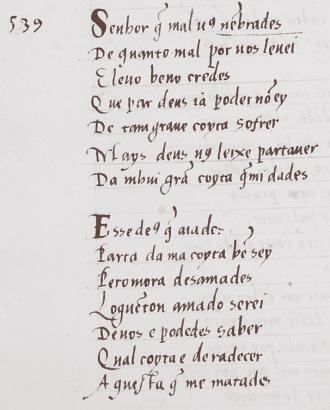 539
Senhor q̃ mal uꝯ nẽbrades
De quanto mal por uos leuei
E leuo beno credes
Que par deus ia poder nõ ey
De tam graue coyta sofrer
Mays deus uꝯ leixe partauer
Da mhui grã coyta q̃ mi dades
Esse deꝯ q̃ aiade
Parta da ma coyta bẽ sey
Pero mora desamades
Logueton amado serei
De uos e podedes saber
Qual coyta e de radecer
A questa q̃ me matades